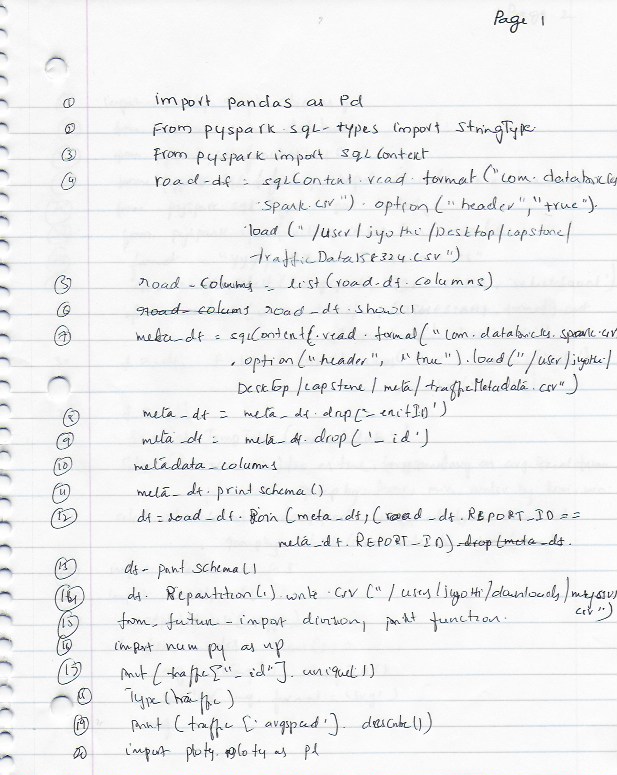 Page 1
① import pandas as Pd
② From pyspark.sql-types import StringType
③ From pyspark import sqlContext
④ road-df = sqlContent.read.format("com.databricks
spark.csv").option("header","true").
load("/user/jyothi/Desktop/capstone/
trafficData158324.csv")
⑤ road-columns = list(road-df.columns)
⑥ road-colums road_df.show()
⑦ meta_df = sqlContent.read.format("com.databricks.spark.csv
.option("header", "true").load("/user/jyothi/
Desktop/capstone/meta/trafficMetadata.csv")
⑧ meta_df = meta_df.drop('-extID')
⑨ meta_df = meta_df.drop('_id')
⑩ metadata_columns
⑪ meta_df.print schema()
⑫ df = road_df.join(meta_df,(road_df.REPORT_ID ==
meta_df.REPORT_ID) drop(meta_df.
df-print schema()
df.Repartition(1).write.csv("/users/jyothi/downloads/
csv")
⑮ from-future-import division, print function.
⑯ import num py as np
print[traffic["_id"].unique()
Type(traffic)
⑲ print (traffic['avgspeed'].describe()
⑳ import plotly.plotly as pl